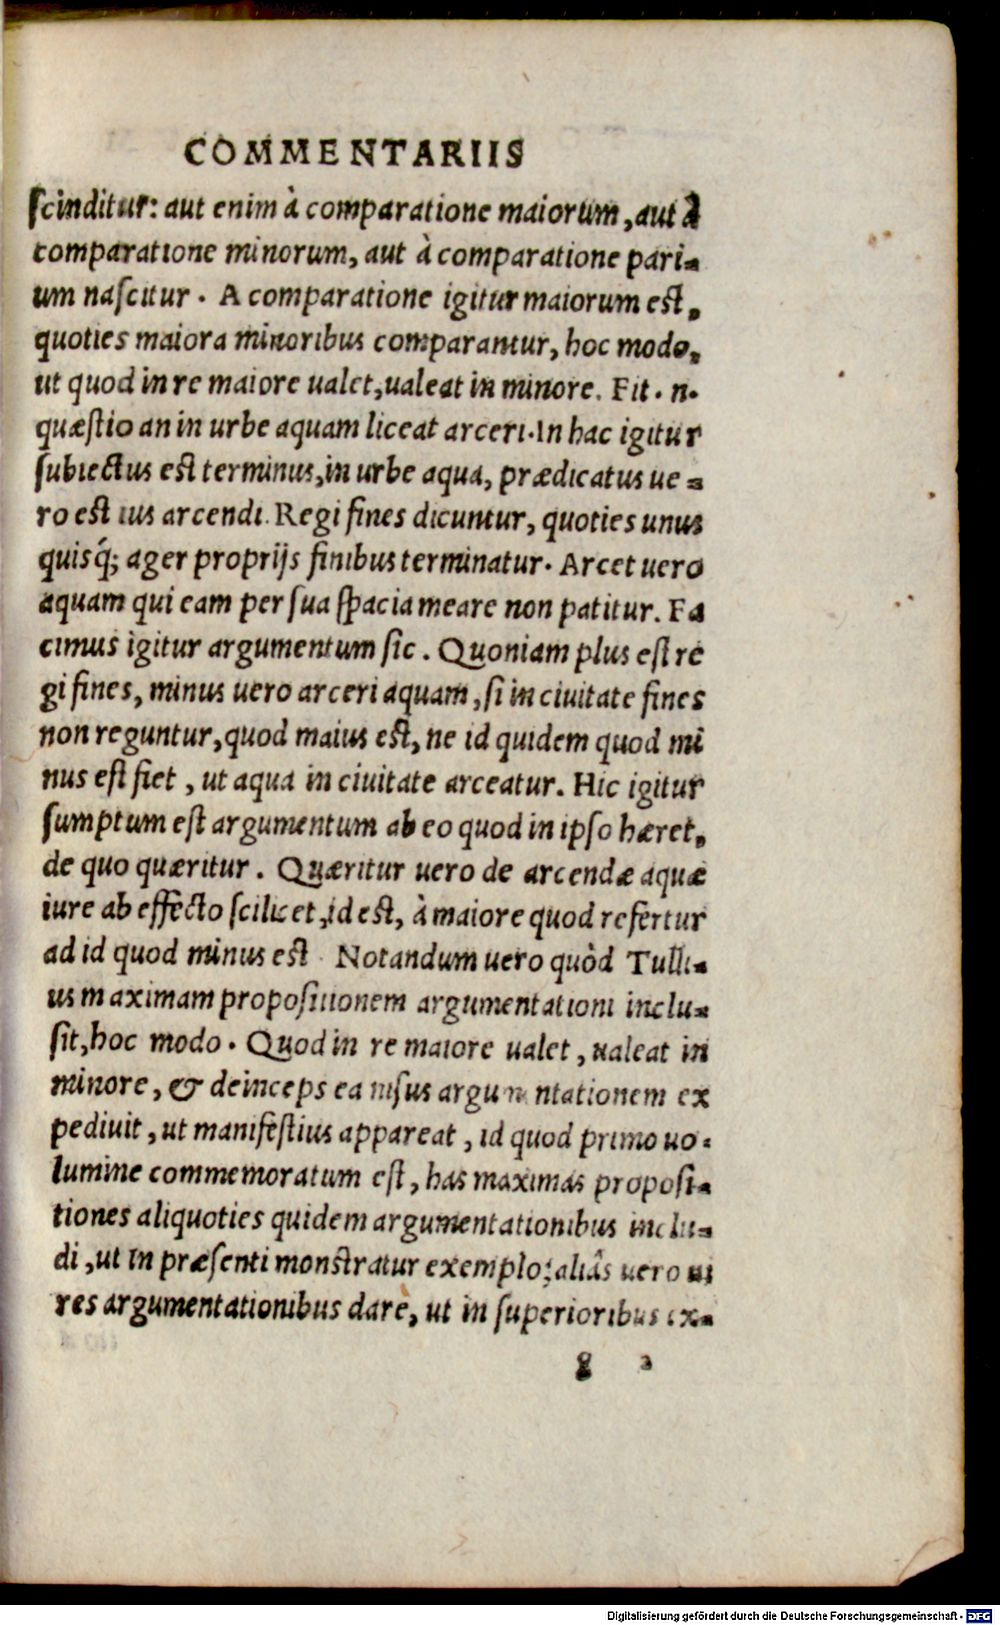 COMMENTARIIS
scinditur: aut enim à comparatione maiorum, aut à
comparatione minorum, aut à comparatione pari-
um nascitur. A comparatione igitur maiorum est,
quoties maiora minoribus comparantur, hoc modo,
ut quod in re maiore ualet, ualeat in minore. Fit. n.
quæstio an in urbe aquam liceat arceri. In hac igitur
subiectus est terminus, in urbe aqua, prædicatus ue-
ro est ius arcendi. Regi fines dicuntur, quoties unus
quisq́; ager proprijs finibus terminatur. Arcet uero
aquam qui eam per sua spacia meare non patitur. Fa
cimus igitur argumentum sic. Quoniam plus est re
gi fines, minus uero arceri aquam, si in ciuitate fines
non reguntur, quod maius est, ne id quidem quod mi
nus est fiet, ut aqua in ciuitate arceatur. Hic igitur
sumptum est argumentum ab eo quod in ipso hæret,
de quo quæritur. Quæritur uero de arcendæ aquæ
iure ab effecto scilicet, id est, à maiore quod refertur
ad id quod minus est. Notandum uero quòd Tulli-
us maximam propositionem argumentationi inclu-
sit, hoc modo. Quod in re maiore ualet, ualeat in
minore, & deinceps ea argumentationem ex
pediuit, ut manifestius appareat, id quod primo uo-
lumine commemoratum est, has maximas proposi-
tiones aliquoties quidem argumentationibus inclu-
di, ut in præsenti monstratur exemplo: aliâs uero ui
res argumentationibus dare, ut in superioribus ex-
g 2
Digitalisierung gefördert durch die Deutsche Forschungsgemeinschaft - DFG